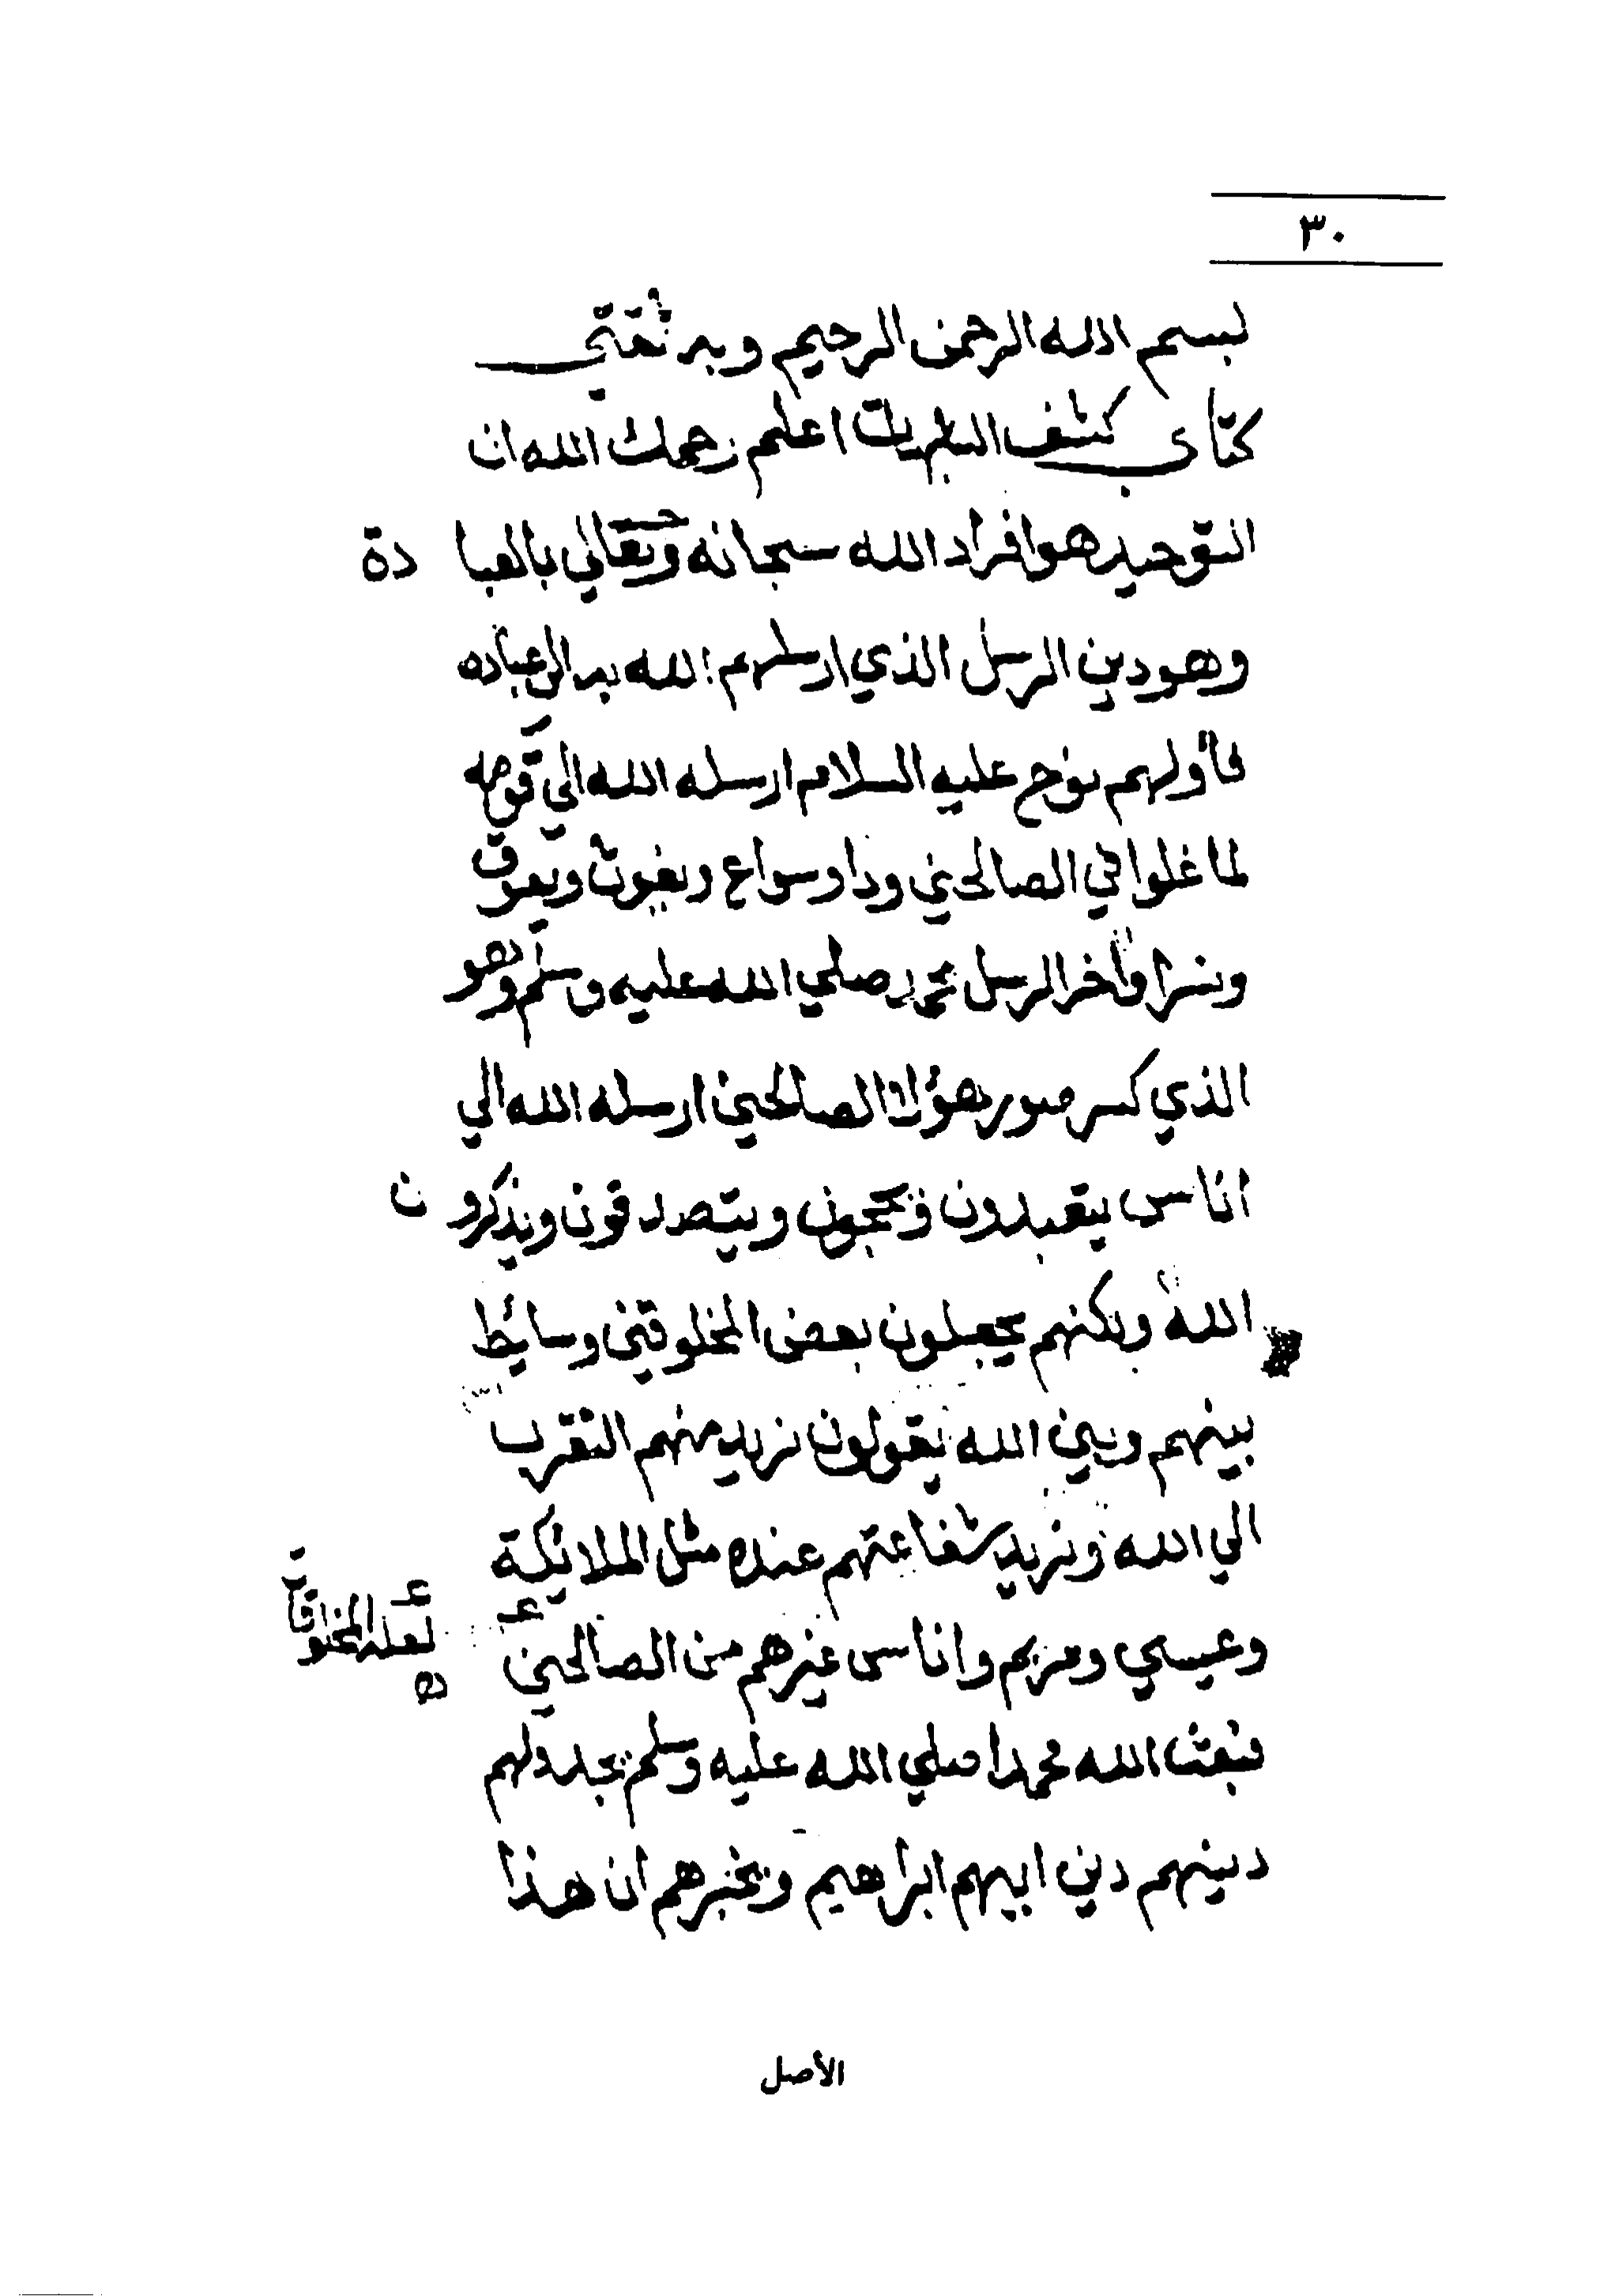 ٣٠
بسم الله الرحمن الرحيم وبه ثقتي
كتاب كشف اعلم رحمك الله ان
التوحيد هو افراد الله سبحانه وتعالى بالعبادة
وهو دين الرسل الذي ارسلهم الله به الى عباده
فأولهم نوح عليه السلام ارسله الله الي قومه
لما غلوا في الصالحين ودا وسواع ويغوث ويعوق
ونسرا وآخر الرسل محمد صلي الله عليه وسلم وهو
الذي كسر صور هؤلاء الصالحين ارسله الله الي
اناس يتعبدون ويحجون ويتصدقون ويذكرون
الله ولكنهم يجعلون بعض المخلوقين وسائط
بينهم وبين الله يقولون نريد منهم التقرب
الي الله ونريد شفاعتهم عنده مثل الملائكة
وعيسي ومريم واناس غيرهم من الصالحين
لعله المخلوقات
فبعث الله محمدا صلي الله عليه وسلم يجدد لهم
دينهم دين ابيهم ابراهيم ويخبرهم ان هذا
الأصل